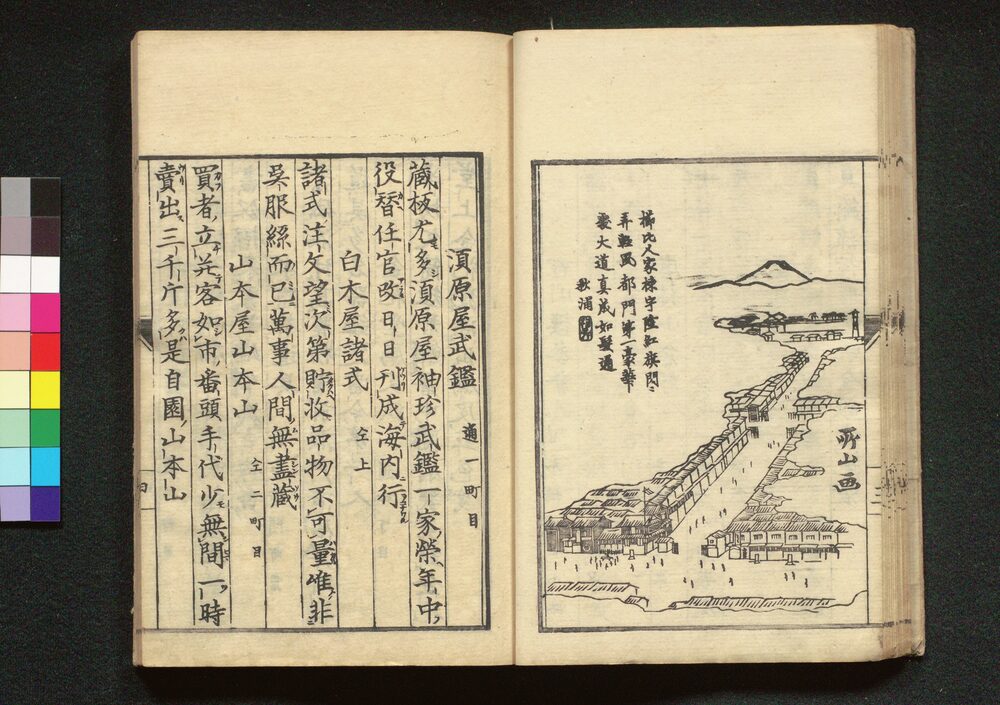 櫛比人家棟宇陰紅旗閃〻
弄軽風都門第一豪華
聚大道真成如髪通
秋涓
所山画
須原屋武鑑 通一町目
蔵板尤多須原屋袖珍武鑑一家栄年中
役替任官改日日刊成海内行
白木屋諸式 仝上
諸式注文望次第貯收品物不可量唯非
呉服絲而已萬事人間無盡蔵
山本屋山本山 仝二町目
買者立花客如市番頭手代少無間一時
賣出三千斤多是自園山本山